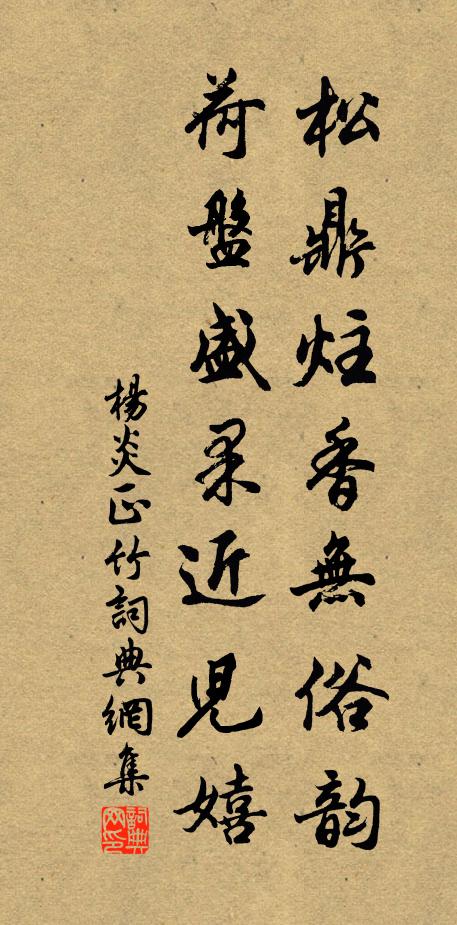 松鼎炷香無俗韵
荷盤盛果近兒嬉
楊炎正竹詞典網集
詞典网印